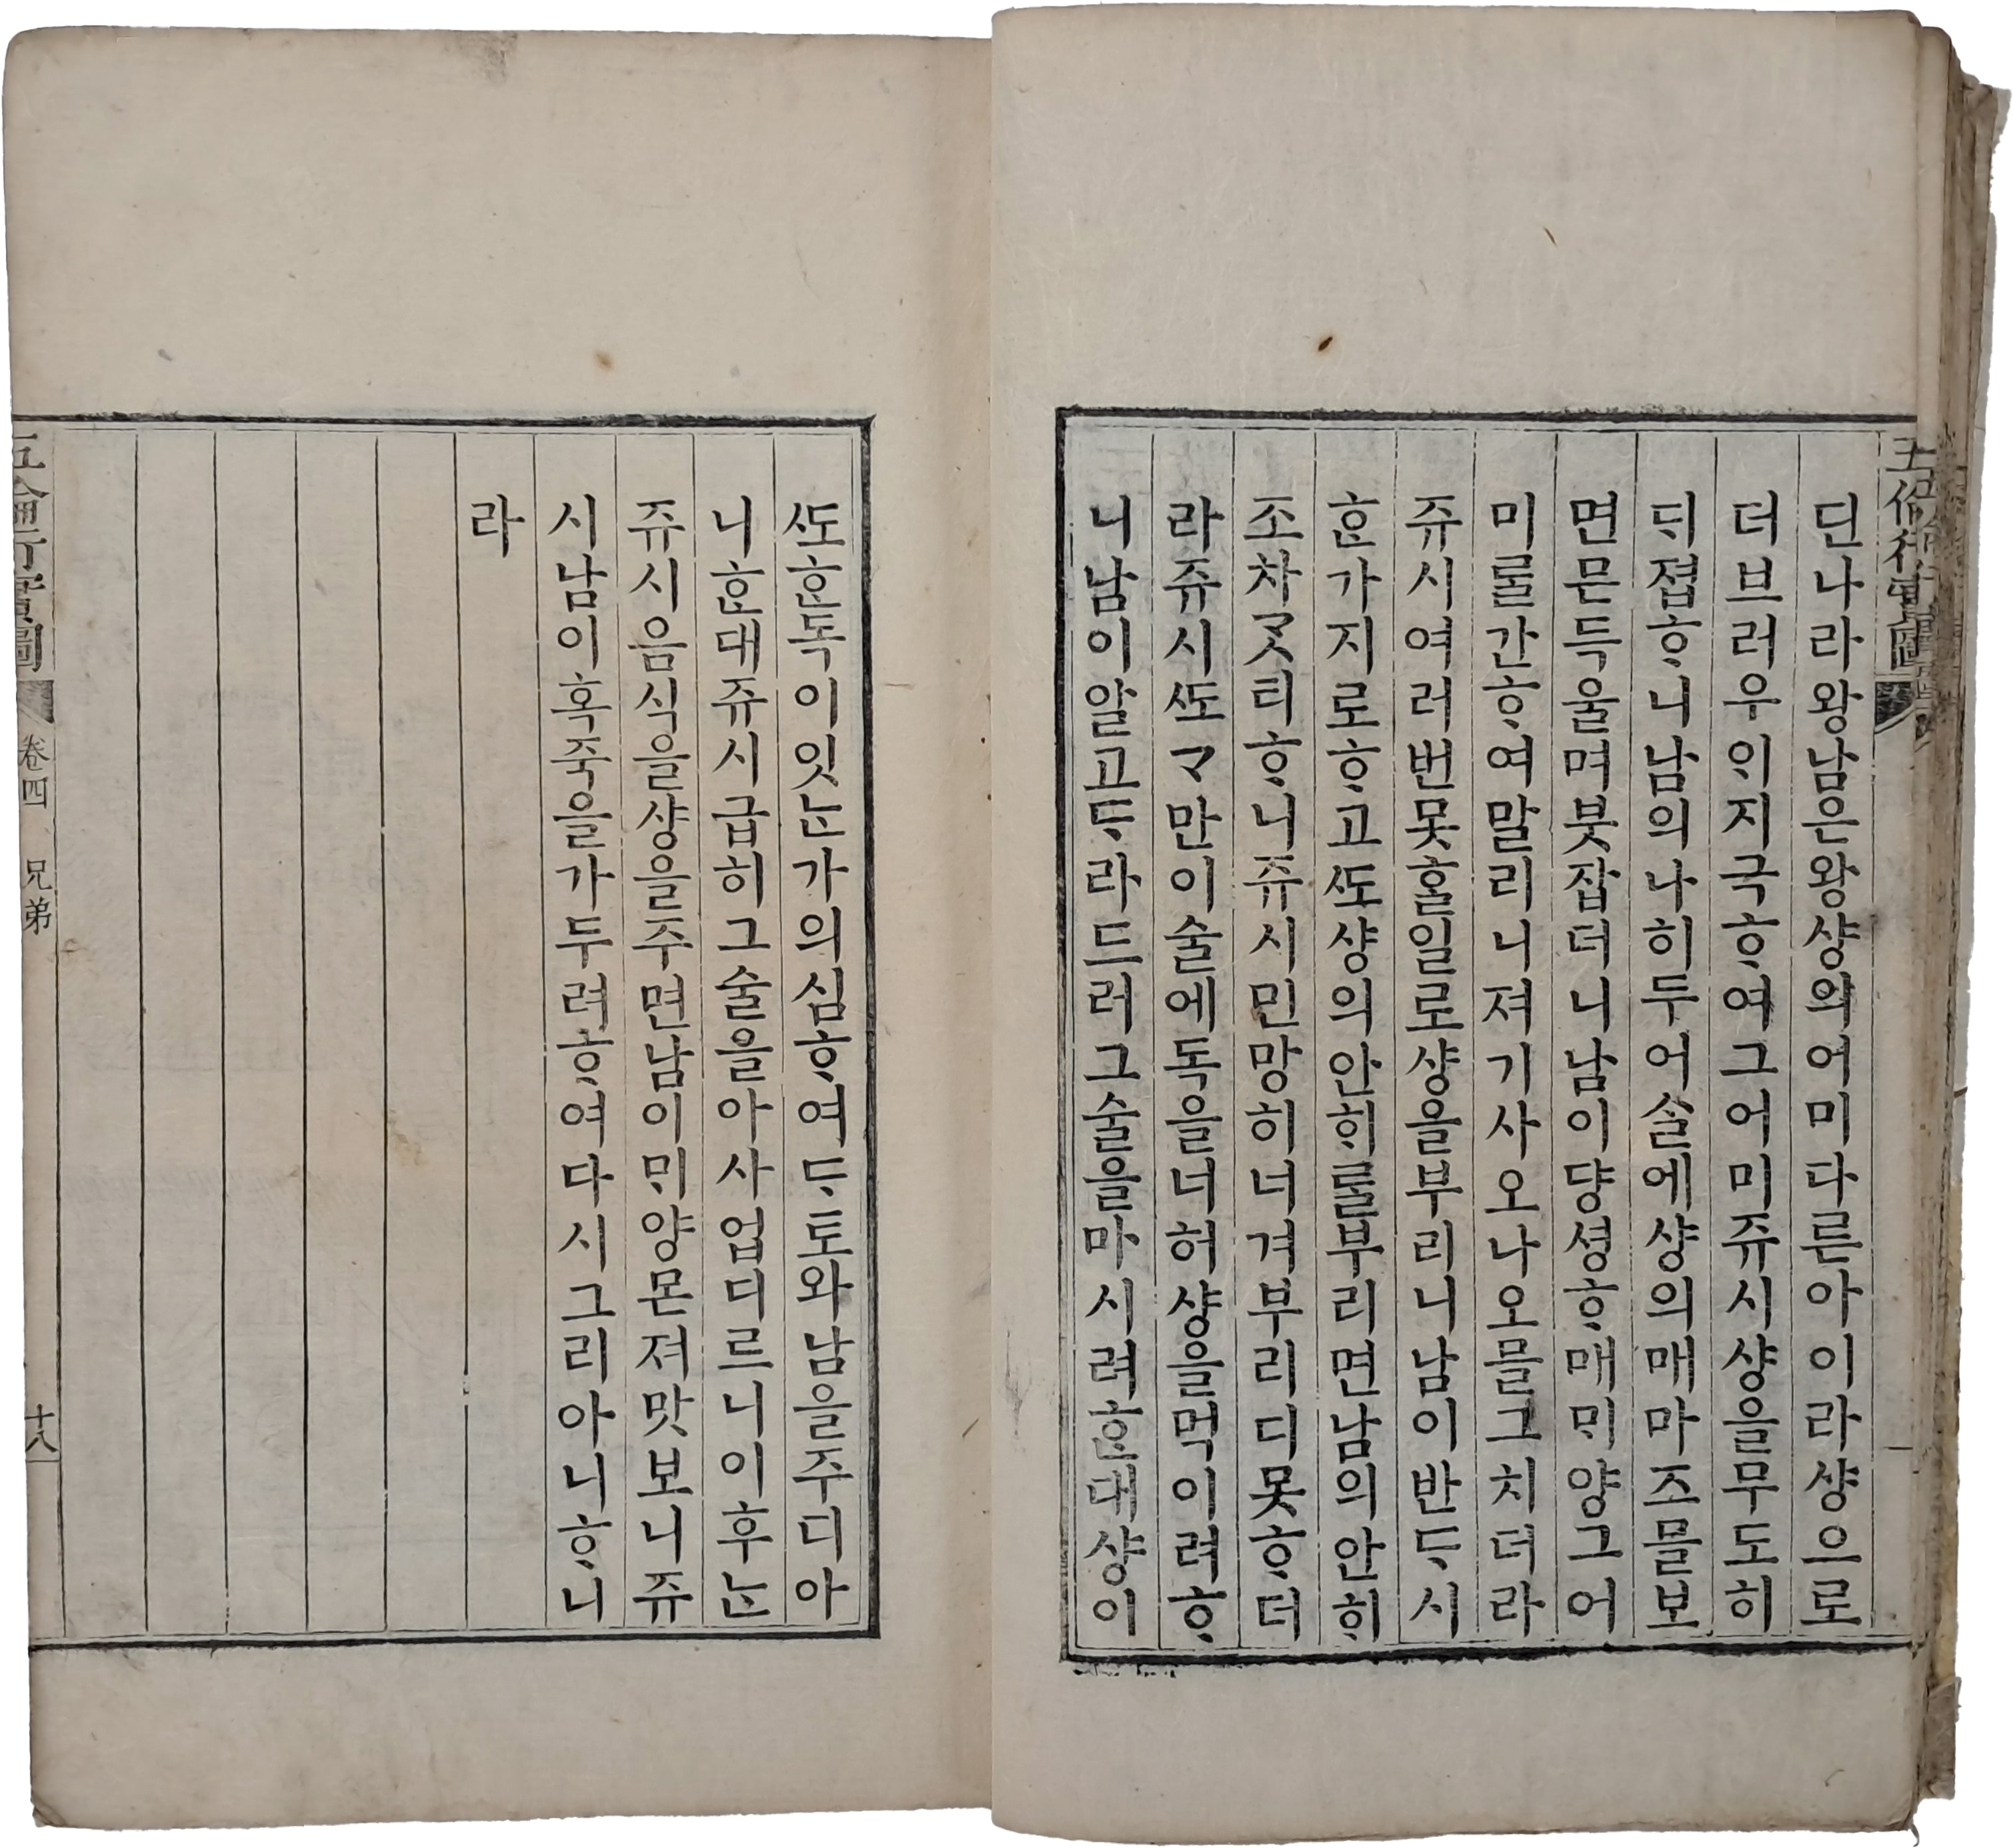 딘나라왕남은왕샹의어미다른아이라샹으로
더브러우이지극ᄒᆞ여그어미쥬시샹을무도히
ᄃᆡ졉ᄒᆞ니남의나히두어ᄉᆞᆯ에샹의매마조믈보
면믄득울며븟잡더니남이댱셩ᄒᆞ매ᄆᆡ양그어
미ᄅᆞᆯ간ᄒᆞ여말리니져기사오나오믈그치더라
쥬시여러번못ᄒᆞᆯ일로샹을부리니남이반ᄃᆞ시
ᄒᆞᆫ가지로ᄒᆞ고ᄯᅩ샹의안ᄒᆡᄅᆞᆯ부리면남의안ᄒᆡ
조차ᄀᆞᆺ티ᄒᆞ니쥬시민망히너겨부리디못ᄒᆞ더
라쥬시ᄯᅩᄀᆞ만이술에독을너허샹을먹이려ᄒᆞ
니남이알고ᄃᆞ라드러그술을마시려ᄒᆞᆫ대샹이
ᄯᅩᄒᆞᆫ독이잇ᄂᆞᆫ가의심ᄒᆞ여ᄃᆞ토와남을주디아
니ᄒᆞᆫ대쥬시급히그술을아사업디르니이후ᄂᆞᆫ
쥬시음식을샹을주면남이ᄆᆡ양몬져맛보니쥬
시남이혹죽을가두려ᄒᆞ여다시그리아니ᄒᆞ니
라
五倫行實圖 卷四 兄弟 十八